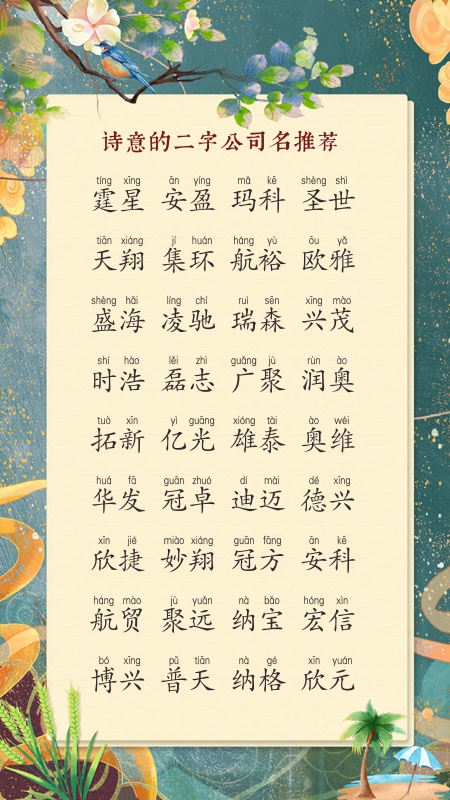 诗意的二字公司名推荐
tíng xīng ān yíng mǎ kē shèng shì
霆星 安盈 玛科 圣世
tiān xiáng jí huán háng yù ōu yǎ
天翔 集环 航裕 欧雅
shèng hǎi líng chí ruì sēn xīng mào
盛海 凌驰 瑞森 兴茂
shí hào lěi zhì guǎng jù rùn ào
时浩 磊志 广聚 润奥
tuò xīn yì guāng xióng tài ào wéi
拓新 亿光 雄泰 奥维
huá fā guān zhuó dí mài dé xīng
华发 冠卓 迪迈 德兴
xīn jié miào xiáng guān fāng ān kē
欣捷 妙翔 冠方 安科
háng mào jù yuǎn nà bǎo hóng xìn
航贸 聚远 纳宝 宏信
bó xīng pǔ tiān nà gé xīn yuán
博兴 普天 纳格 欣元